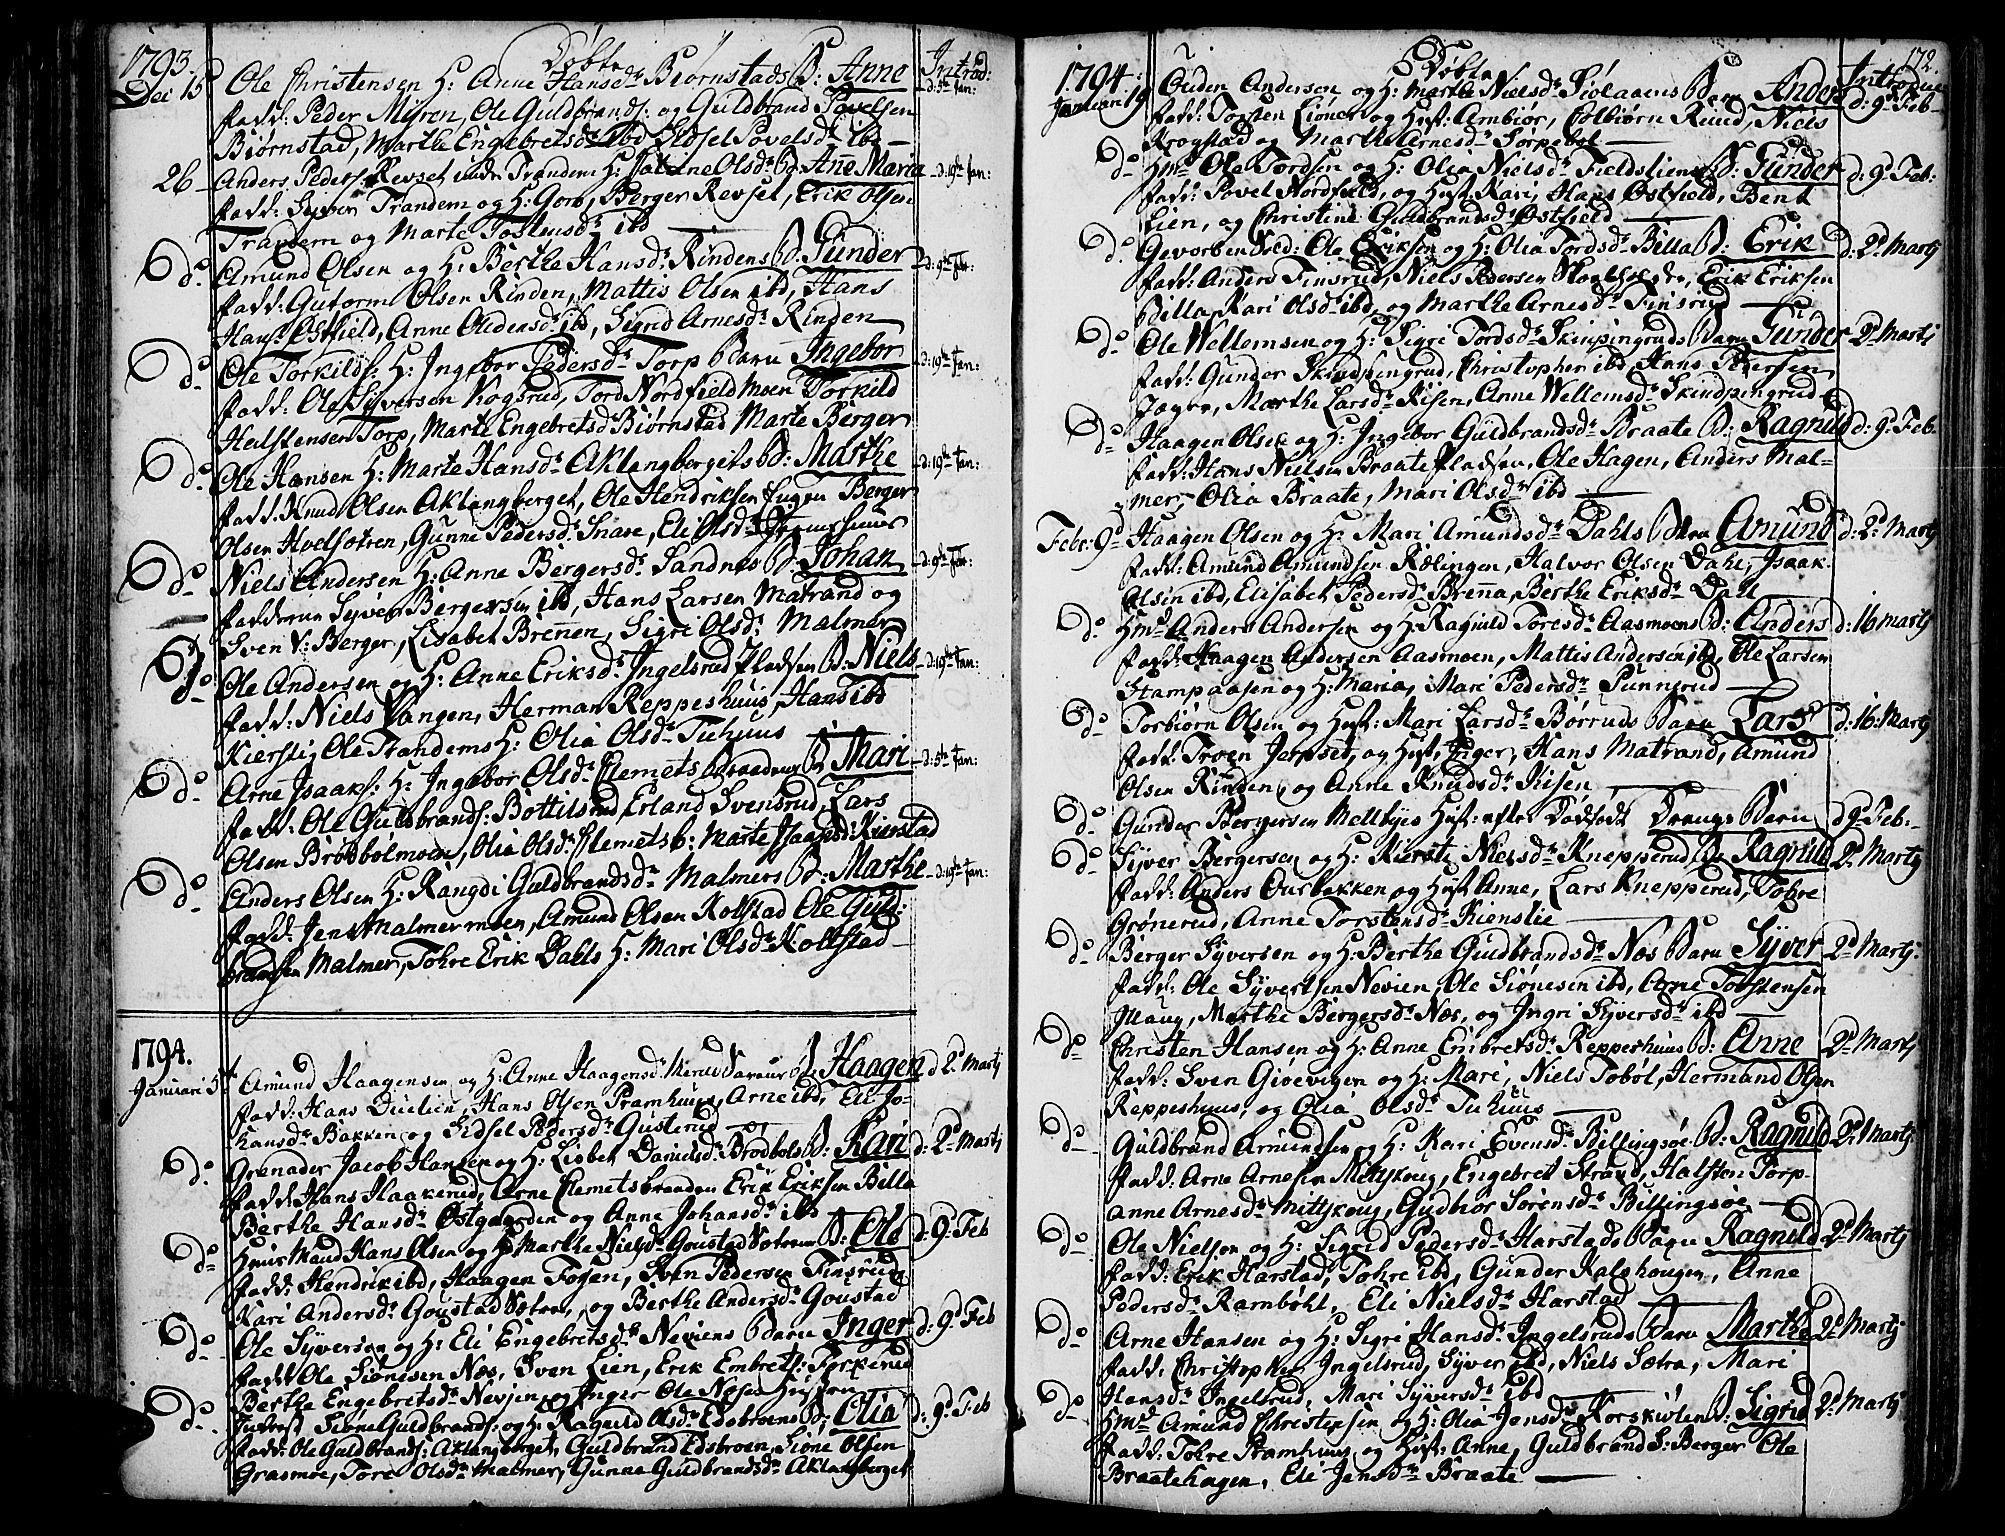 1793. Døbte Introd:
Dec 15 Ole Christensen H: Anne Hansd: Biørnstads B: Anne d: 5te Jan:
fadd: Peder Myren, Ole Guldbrands: og Guldbrand Povelsen
Biørnstad, Marthe Engebretsd: ibd Povelsd: ibd
26 Anders Peders: Revset Trandem H: Olsd: B: Anne Maria d: 19de Jan:
fadd: Syver Trandem og H: Goro, Berger Revset, Erik Olsen
Trandem og Marte Tostensd: ibd
do Amund Olsen og H: Berthe Hansd: Rindens B: Gunder d: 9de Feb:
fadd: Gutorm Olsen Rinden, Mattis Olsen ibd, Hans
Hans: Ostfield, Anne ibd, Sigrid Arnesd: Rinden
do Ole Torkilds: H: Ingebor Pedersd: Torp Barn Ingebor d: 19de Jan:
fadd: Ole Syversen Kogsrud, Tord Nordfield Moen Torkild
Helstensen Torp, Marte Engebretsd Biørnstad Marte Berger
do Ole Hansen H: Marte Hansd: Aklangbergets B: Marthe d: 19de Jan:
fadd: Knud Olsen Aklangberget, Ole Hendriksen Berger
Olsen Gunne Pedersd: Snare, Eli Olsd:
do Niels Andersen H: Anne Bergersd: Sandnes B: Johan d: 9de Feb:
fadderne Syver Bergersen ibd, Hans Larsen Matrand og
Sven V: Berger, Lisabet Brennen, Sigri Olsd: Malmer
do Ole Andersen og H: Anne Eriksd: Ingelsrud Pladsen B: Niels d: 19de Jan:
fadd: Niels Vangen, Herman Reppeshuus, Hans ibd
Kiersti Ole Trandems H: Olia Olsd: Tuhuus
do Arne Isaaks: H: Ingebor Olsd: Klemetsbraaden B Mari d: 5te Jan:
fadd: Ole Guldbrands: Bottilsrud Erland Svensrud, Lars
Olsen Brødbolmoen, Olia Olsd: Klemetsb: Marte Kierstad
do Anders Olsen H: Rangdi Guldbrandsd: Malmers B: Marthe d: 19de Jan:
fadd: Jens Malmermoen, Amund Olsen Kolstad Ole Guld:
brandsen Malmer, Tohre Erik Dahls H: Mari Olsd: Kolstad
1794.
Januari 5te Amund Haagensen og H: Anne Haagensd: B: Haagen d 2d Martj
fadd: Hans Duelien, Hans Olsen Pramhuus, Arne ibd, Eli Jo-
hansd: Bakken og Sidsel Pedersd: Gusterud
do Grenader Jacob Hansen og H: Lisbet Danielsd: Brødbols B: Kari d: 2d Martj
fadd: Hans Haakerud, Arne Klemetsbraaden Erik Eriksen Billa
Berthe Hansd: Ostgaarden og Anne Johansd: ibd
do Huusmand Hans Olsen og H: Marthe Nielsd: Goustad B: Ole d: 9d Feb
fadd: Hendrik ibd, Haagen Fogen, Sven Pedersen Finsrud
Kari Andersd: Goustad Sætren, og Berthe Andersd: Goustad
do Ole Syversen og H: Eli Engebretsd: Neviens Barn Inger d: 9d Feb
fadd: Ole Siønesen Næs, Sven Lien, Erik Embrets: Torkerud
Berthe Engebretsd: Nevien, og Inger Ole Næses Hustru
do Siøne Guldbrands: og H: Ragnild Olsd: Edsbroens B: Olia d: 9d Feb
fadd: Ole Guldbrands: Aklangberget, Guldbrand Edsbroen, Siøne Olsen
Grasmoe, Tore Olsd: Malmer, Gunne Guldbrandsd: Aklangberget
172.
1794: Døbte Introduc
Januari 19 Ouden Andersen og H: Marthe Nielsd: Siolaaens Barn Anders d: 9d Feb
fadd: Torsten Lioner og Hust: Arnbiør, Colbiørn Ruud, Niels
Krogstad og Marthe Arnesd: Sørpebøl
do Hmd Ole Tordsen og H: Olia Nielsd: Fieldsliens B: Gunder d: 9d Feb:
fadd: Povel Nordfield, og Hust Kari, Hans Østfield, Bent
Lien, og Christine Guldbrandsd: Østfield
do Gevorben Sold: Ole Eriksen og H: Olia Tordsd: Billa B: Erik d: 2d Martj
fadd: Anders Finsrud, Niels Pedersen Erik Eriksen
Billa, Kari Olsd: ibd, og Marthe Arnesd: Finsrud
do Ole Wellemsen og H: Sigri Tordsd: Skinpingrud Barn Gunder 2d Martj
fadd: Gunder Skindpungrud, Christopher ibd Hans Pedersen
Marthe Larsd: Risen, Anne Wellemsd: Skindpungrud
do Haagen Olsen og H: Ingebor Guldbrandsd: Braate B: Ragnild d: 9d Feb.
fadd: Hans Nielsen Braate Pladsen, Ole Hagen, Anders Mal-
mer, Olia Braate, Mari Olsd: ibd
Febr: 9d Haagen Olsen og H: Mari Amundsd: Dahls Barn Amund d: 2d Martj
fadd: Amund Amundsen Kølingen, Halvor Olsen Dahl, Isaak
Olsen ibd, Elisabet Pedersd: Brenna, Berthe Eriksd: Dahl
do Hmd Anders Andersen og H: Ragnild Toresd: Aasmoens B: Anders d: 16 Martj
fadd: Haagen Andersen Aasmoen, Mattis Andersen ibd, Ole Larsen
Stampaasen og H: Maria, Mari Pedersd: Punnerud
do Torbiørn Olsen og Hust: Mari Larsd: Børruds Barn Lars d: 16: Martj
fadd: Troen Jerpset, og Hust: Inger, Hans Matrand, Amund
Olsen Rinden og Anne Knudsd: Risen
do Gunder Bergersen Mellbyes Hust: efter Dødfødt Drenge Barn d 9d Feb:
do Syver Bergersen og H: Kiersti Nielsd: Knepperud B Ragnild 2d Martj
fadd: Anders Ourbakken og Hust Anne, Lars Knepperud, Tohre
Grønerud, Anne Torstensd: Kienslie
do Berger Syversen og H: Berthe Guldbrandsd: Næs Barn Syver 2d Martj:
fadd: Ole Syvertsen Nevien, Ole Siønesen ibd, Arne Torstensen
Houg, Marthe Bergersd: Næs, og Ingri Syversd: ibd
do Christen Hansen og H: Anne Embretsd: Reppeshuus B: Anne 2d Martj
fadd: Sven Giøevigen og H: Mari, Niels Tobøl, Hermand Olsen
Reppeshuus, og Olia Olsd: Tuhuus
do Guldbrand Armundsen og H: Kari Evensd: Billingsøe B: Ragnild 2d Martj:
fadd: Arne Arnesen Mittskoug, Engebret Strand, Halsten Torp
Anne Arnesd: Mittskoug, Gudbior Sørensd: Billingsøe
do Ole Nielsen og H: Sigrid Pedersd: Harstads Barn Ragnild 2d Martj
fadd: Erik Harstad, Tohre ibd, Gunder Kalshougen, Anne
Pedersd: Rambøhl, Eli Nielsd: Harstad
do Arne Hansen og H: Sigri Hansd: Ingelsruds Barn Marthe 2d Martj
fadd: Christopher Ingelsrud, Syver ibd, Niels Sætra, Mari
Hansd: Ingelsrud, Mari Syversd: ibd
do Hmd Amund Christensen og H: Olia Jensd: Korskiølen B: Sigrid 2d Martj
fadd: Tohre Pramhuus og Hust: Anne, Guldbrand S: Berger Ole
Braatehagen, Eli Jensd: Braate